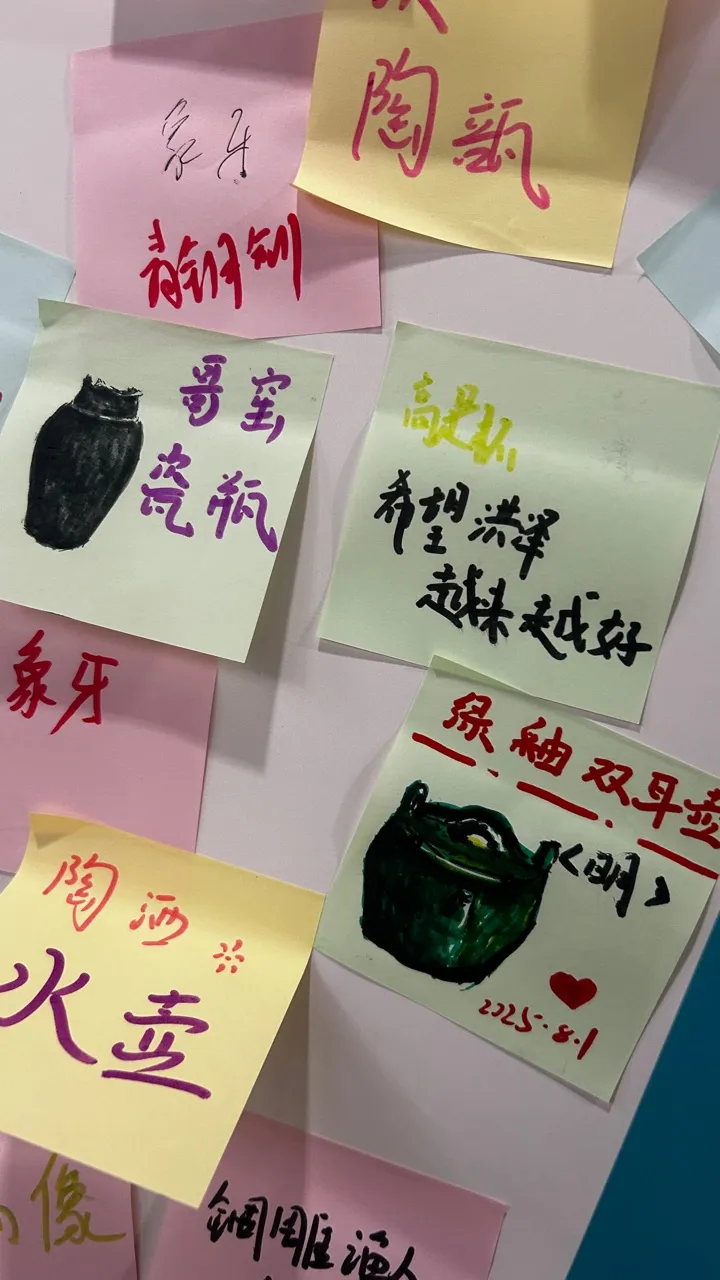 陶瓶
象牙
青铜钊
哥窑
瓷瓶
高足杯
希望洪泽
越来越好
象牙
绿釉双耳壶
<明>
2025.8.1
陶洒
火壶
像
渔人